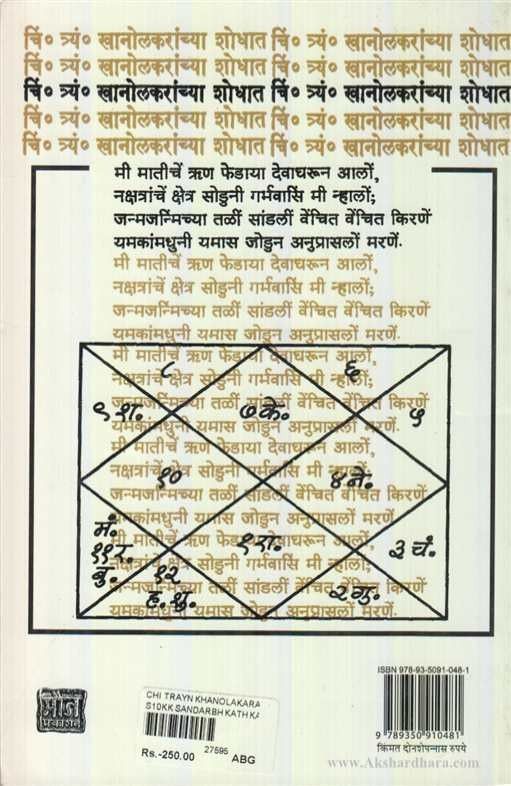 चिं० त्र्यं० खानोलकरांच्या शोधात चिं० त्र्यं० खानोलकरांच्या शोधात
चिं० त्र्यं० खानोलकरांच्या शोधात चिं० त्र्यं० खानोलकरांच्या शोधात
चिं० त्र्यं० खानोलकरांच्या शोधात चिं० त्र्यं० खानोलकरांच्या शोधात
चिं० त्र्यं० खानोलकरांच्या शोधात चिं० त्र्यं० खानोलकरांच्या शोधात
चिं० त्र्यं० खानोलकरांच्या शोधात चिं० त्र्यं० खानोलकरांच्या शोधात
मी मातीचें ऋण फेडाया देवाघरून आलों,
नक्षत्रांचें क्षेत्र सोडुनी गर्भवासिं मी न्हालों;
जन्मजन्मिंच्या तळीं सांडलीं वेंचित वेंचित किरणें
यमकांमधुनी यमास जोडुन अनुप्रासलों मरणें.
मी मातीचें ऋण फेडाया देवाघरून आलों,
नक्षत्रांचें क्षेत्र सोडुनी गर्भवासिं मी न्हालों;
जन्मजन्मिंच्या तळीं सांडलीं वेंचित वेंचित किरणें
यमकांमधुनी यमास जोडुन अनुप्रासलों मरणें.
मी मातीचें ऋण फेडाया देवाघरून आलों,
८ ६
नक्षत्रांचें क्षेत्र सोडुनी गर्भवासिं मी न्हालों;
जन्मजन्मिंच्या तळीं सांडलीं वेंचित वेंचित किरणें
९ श. ७ के. ५
यमकांमधुनी यमास जोडुन अनुप्रासलों मरणें.
मी मातीचें ऋण फेडाया देवाघरून आलों,
नक्षत्रांचें क्षेत्र सोडुनी गर्भवासिं मी न्हालों;
१० ४ ने.
जन्मजन्मिंच्या तळीं सांडलीं वेंचित वेंचित किरणें
यमकांमधुनी यमास जोडुन अनुप्रासलों मरणें.
मी मातीचें ऋण फेडाया देवाघरून आलों,
मं.
११ र. १ रा. ३ चं.
बु.
नक्षत्रांचें क्षेत्र सोडुनी गर्भवासिं मी न्हालों;
१२
जन्मजन्मिंच्या तळीं सांडलीं वेंचित वेंचित किरणें
ह. शु. २ गु.
यमकांमधुनी यमास जोडुन अनुप्रासलों मरणें.
मौज
प्रकाशन
CHI TRAYN KHANOLAKARA
S10KK SANDARBH KATH KA
Rs.-250.00 27595 ABG
ISBN 978-93-5091-048-1
9 789350 910481
किंमत दोनशेपन्नास रुपये
www.Akshardhara.com